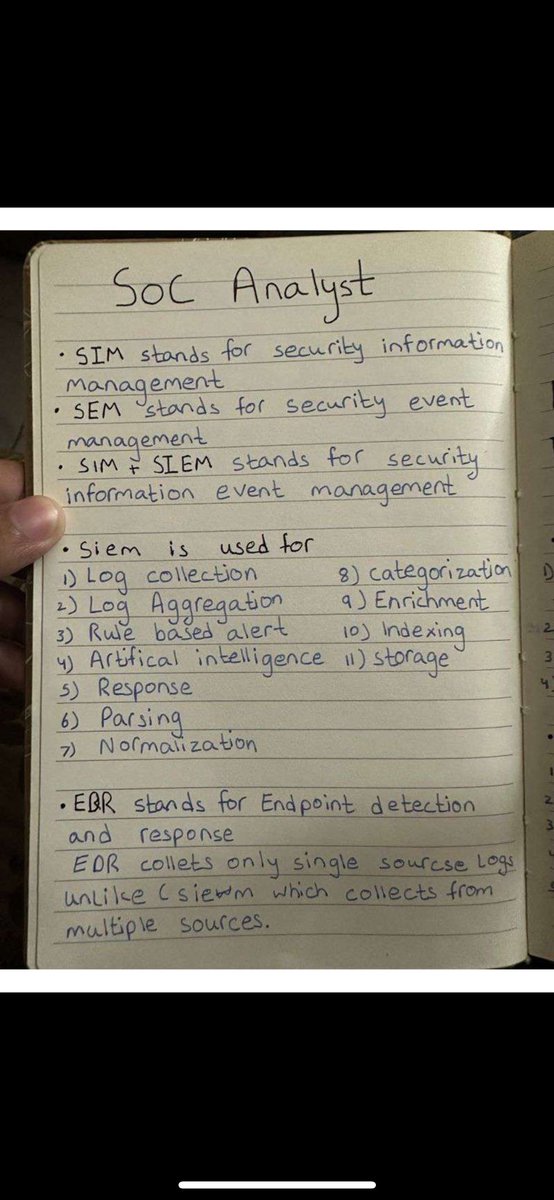 SOC Analyst
• SIM stands for security information
management
• SEM stands for security event
management
• SIM + SIEM stands for security
information event management
• Siem is used for
1) Log collection
2) Log Aggregation
3) Rule based alert
4) Artifical intelligence
5) Response
6) Parsing
7) Normalization
8) categorization
9) Enrichment
10) Indexing
11) storage
• EDR stands for Endpoint detection
and response
EDR collets only single sourcse Logs
unlike ( siem which collects from
multiple sources.